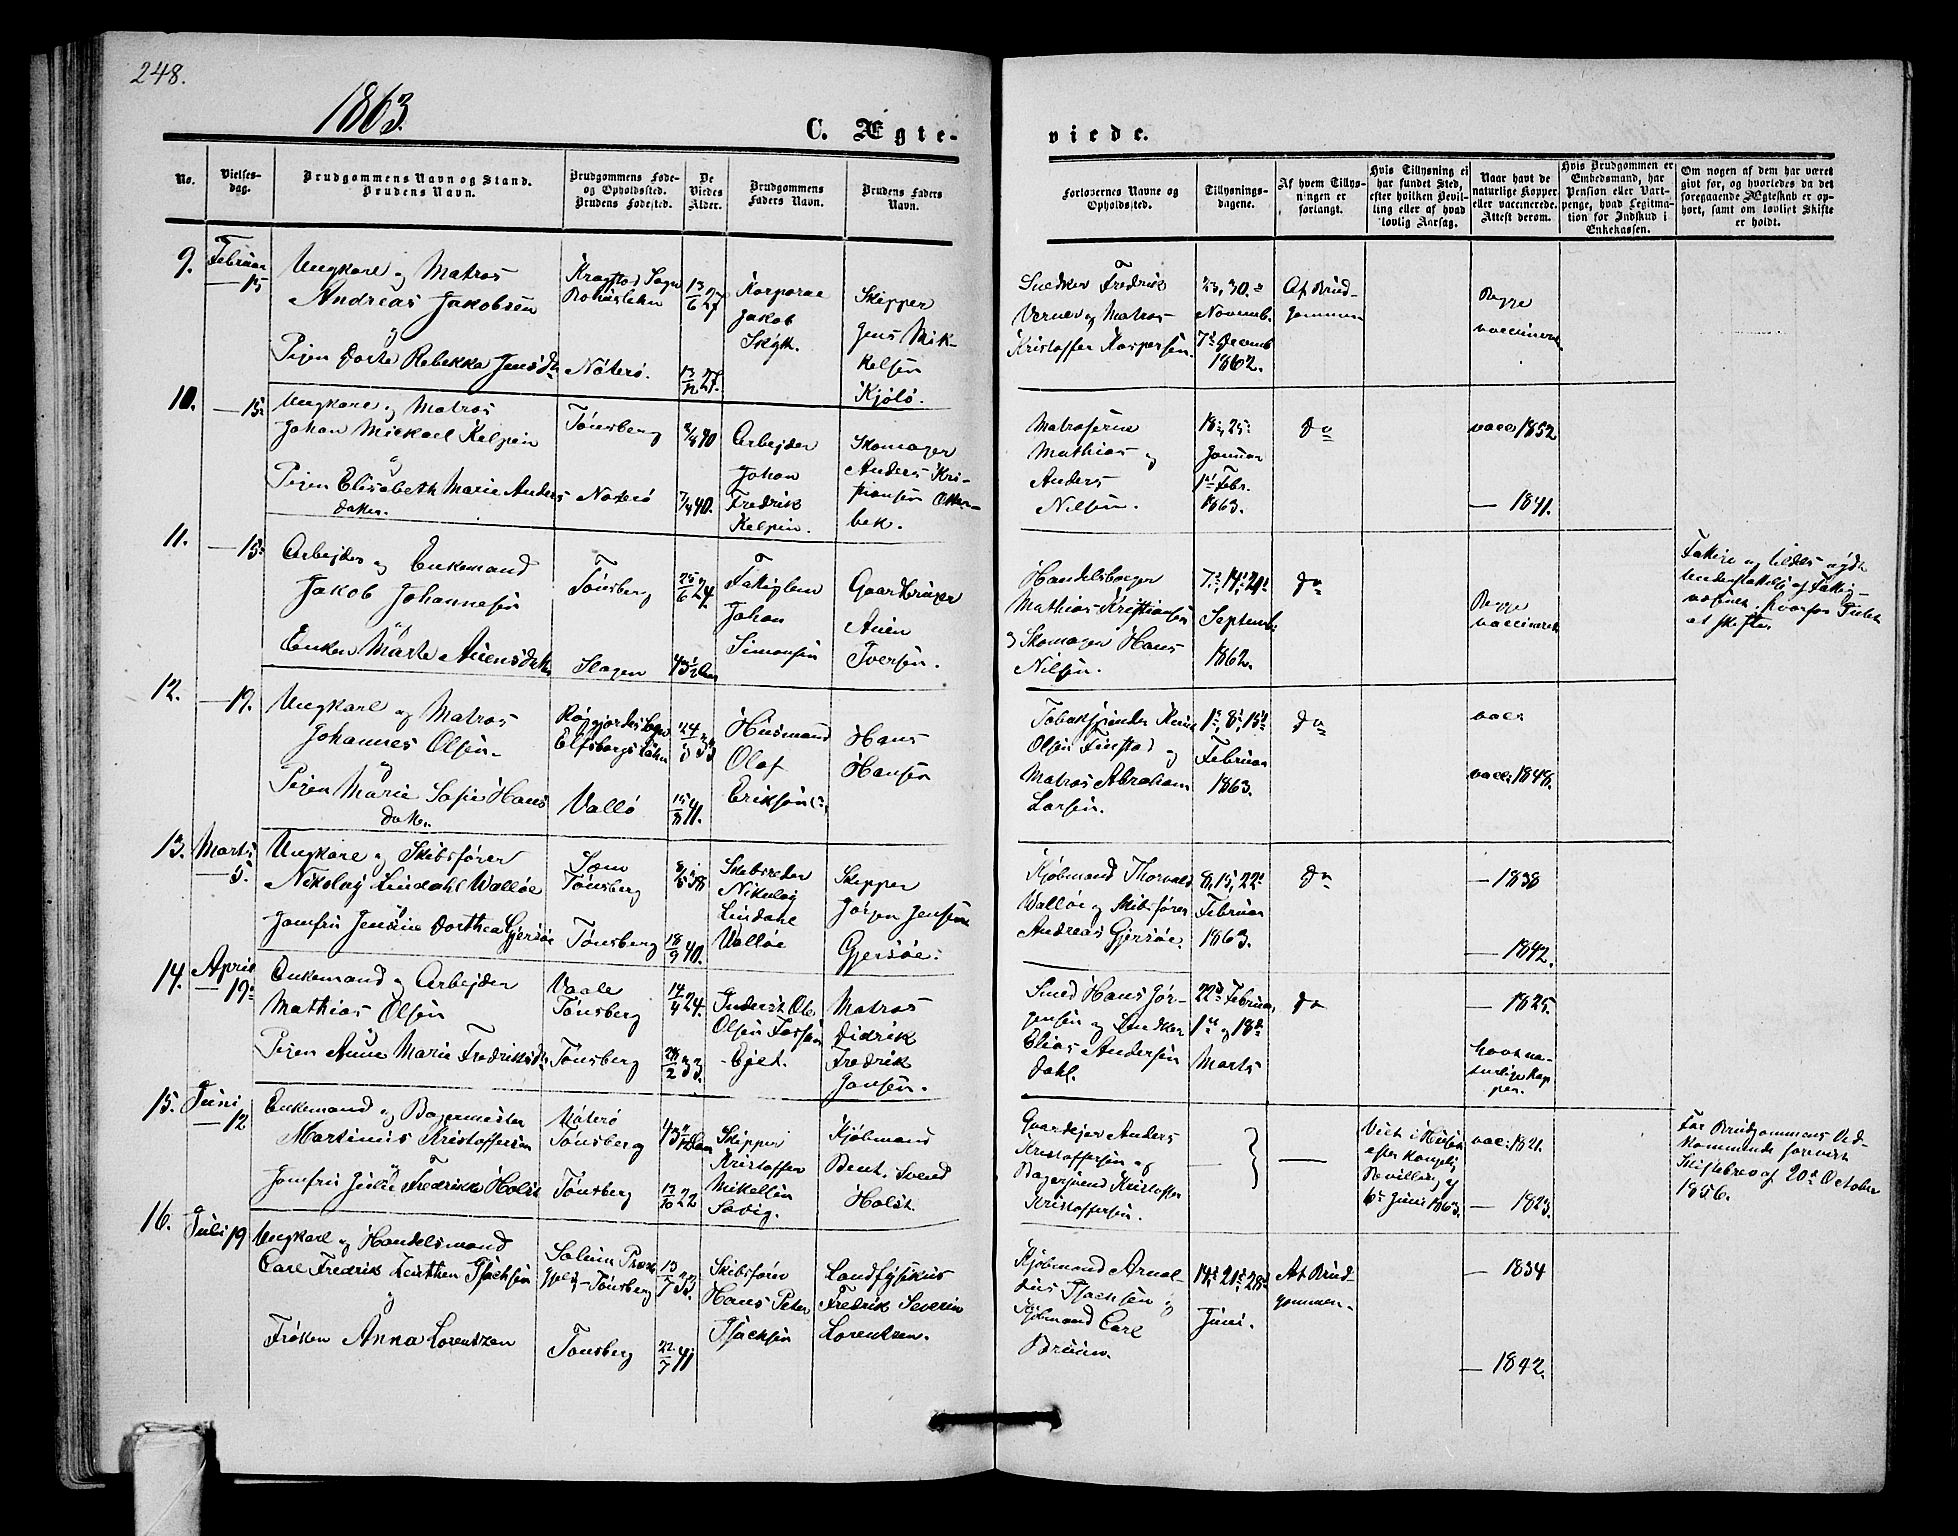 248.
1863.
C. Ægte-
viede.
No.
Vielses-
dag.
Brudgommens Navn og Stand.
Brudens Navn.
Brudgommens Føde-
og Opholdssted.
Brudens Fødested.
De
Viedes
Alder.
Brudgommens
Faders Navn.
Brudens Faders
Navn.
Forlovernes Navne og
Opholdssted.
Tillysnings-
dagene.
Af hvem Tillys-
ningen er
forlangt.
Hvis Tillysning ei
har fundet Sted,
efter hvilken Bevil-
ling eller af hvad
lovlig Aarsag.
Naar havt de
naturlige Kopper
eller vaccinerede.
Attest derom.
Hvis Brudgommen er
Embedsmand, har
Pension eller Vart-
penge, hvad Legitma-
tion for Indskud i
Enkekassen.
Om nogen af dem har været
givt før, og hvorledes da det
foregaaende Ægteskab er op-
hørt, samt om lovligt Skifte
er holdt.
9.
Februar
15
Ungkarl og Matros
Andreas Jakobsen
og
Pigen Dorte Rebekka Jensd.
Sogn
Nøterø.
13/6 27
13/12 27.
Korporal
Jakob
Skipper
Jens Mik-
kelsen
Kjølø.
Snedker Fredrik
Verner og Matros
Kristoffer Kaspersen.
23, 30.
Novemb.
7de Decemb
1862.
Af Brud-
gommen
Begge
vaccinerede
10.
15
Ungkarl og Matros
Johan Mickael Kelpin
og
Pigen Elisabeth Marie Anders
datter.
Tønsberg
Nøterø
40
40.
Arbejder
Johan
Fredrik
Kelpin.
Skomager
Anders Kri-
stiansen
bek.
Matroserne
Mathias og
Anders
Nilsen.
18, 25
Januar
1ste Febr.
1863.
do
vacc. 1852
— 1841.
11.
15
Arbejder og Enkemand
Jakob Johannesen
og
Enken Marte Aliensdtr.
Tønsberg
Slagen
25/6 24
Fattiglem
Johan
Simonsen
Gaardbruger
Iversen.
Handelsborger
Mathias Kristiansen
og Skomager Hans
Nilsen.
7, 14, 21
Septemb.
1862.
do
Begge
vaccinerede
Fattige og tildels nydt
Understøttelse af Fattig-
væsenet, hvorfor Intet
at skifte.
12.
19.
Ungkarl og Matros
Johannes Olsen
og
Pigen Marie Sofie Hans
datter.
Vallø
24/3 33
15/3 41.
Husmand
Olaf
Eriksen
Hans
Hansen
Olsen Finstad og
Matros Abraham
Larsen.
1, 8, 15
Februar
1863.
do
vacc.
vacc. 1848.
13.
Marts
5.
Ungkarl og Skibsfører
Nikolaj Lindahl Walløe
og
Jomfru Jensine Dorthea Gjersøe
Sem
Tønsberg
Tønsberg
38
18/9 40.
Skibsreder
Nikolaj
Lindahl
Walløe
Skipper
Jørgen Jensen
Gjersøe.
Kjøbmand Thorvald
Walløe og Skibsfører
Andreas Gjersøe.
8, 15, 22
Februar
1863.
do
— 1838
— 1842.
14.
April
19
Enkemand og Arbejder
Mathias Olsen
Pigen Anne Marie Fredriksd.
Vaale
Tønsberg
Tønsberg
14/4 24.
28/2 33.
Inderst Ole
Olsen
Matros
Didrik
Fredrik
Jansen.
Smed Hans Jør-
gensen og Snedker
Elias Andersen
Dahl.
22de Februar
1ste og 18de
Marts
do
— 1825.
havt na-
turlige Kop-
per.
15.
Juni
12
Enkemand og Bagermester
Martinus Kristoffersen
og
Jomfru Julie Fredrikke Holst
Nøterø
Tønsberg
Tønsberg
13/10 22
Skipper
Kristoffer
Mikelsen
Kjøbmand
Bent Svend
Holst.
Gaardejer Anders
Kristoffersen og
Bagersvend Kristoffer
Kristoffersen.
—
—
Viet i Huset
efter Kongelig
Bevilling af
6te Juni 1863.
vac. 1821.
— 1823.
For Brudgommens Ved-
kommende forevist
Skiftebrev af 20de October
1856.
16.
Juli 19
Ungkarl og Handelsmand
Carl Fredrik Isachsen
og
Frøken Anna Lorentzen
Tønsberg
Tønsberg
13/7 33.
22/7 41
Skibsfører
Hans Peter
Isachsen
Landfysikus
Fredrik Severin
Lorentzen.
Kjøbmand Arnol-
dus Isachsen og
Kjøbmand Carl
Bruun.
14, 21, 28
Juni.
Af Brud-
gommen.
— 1834
— 1842.